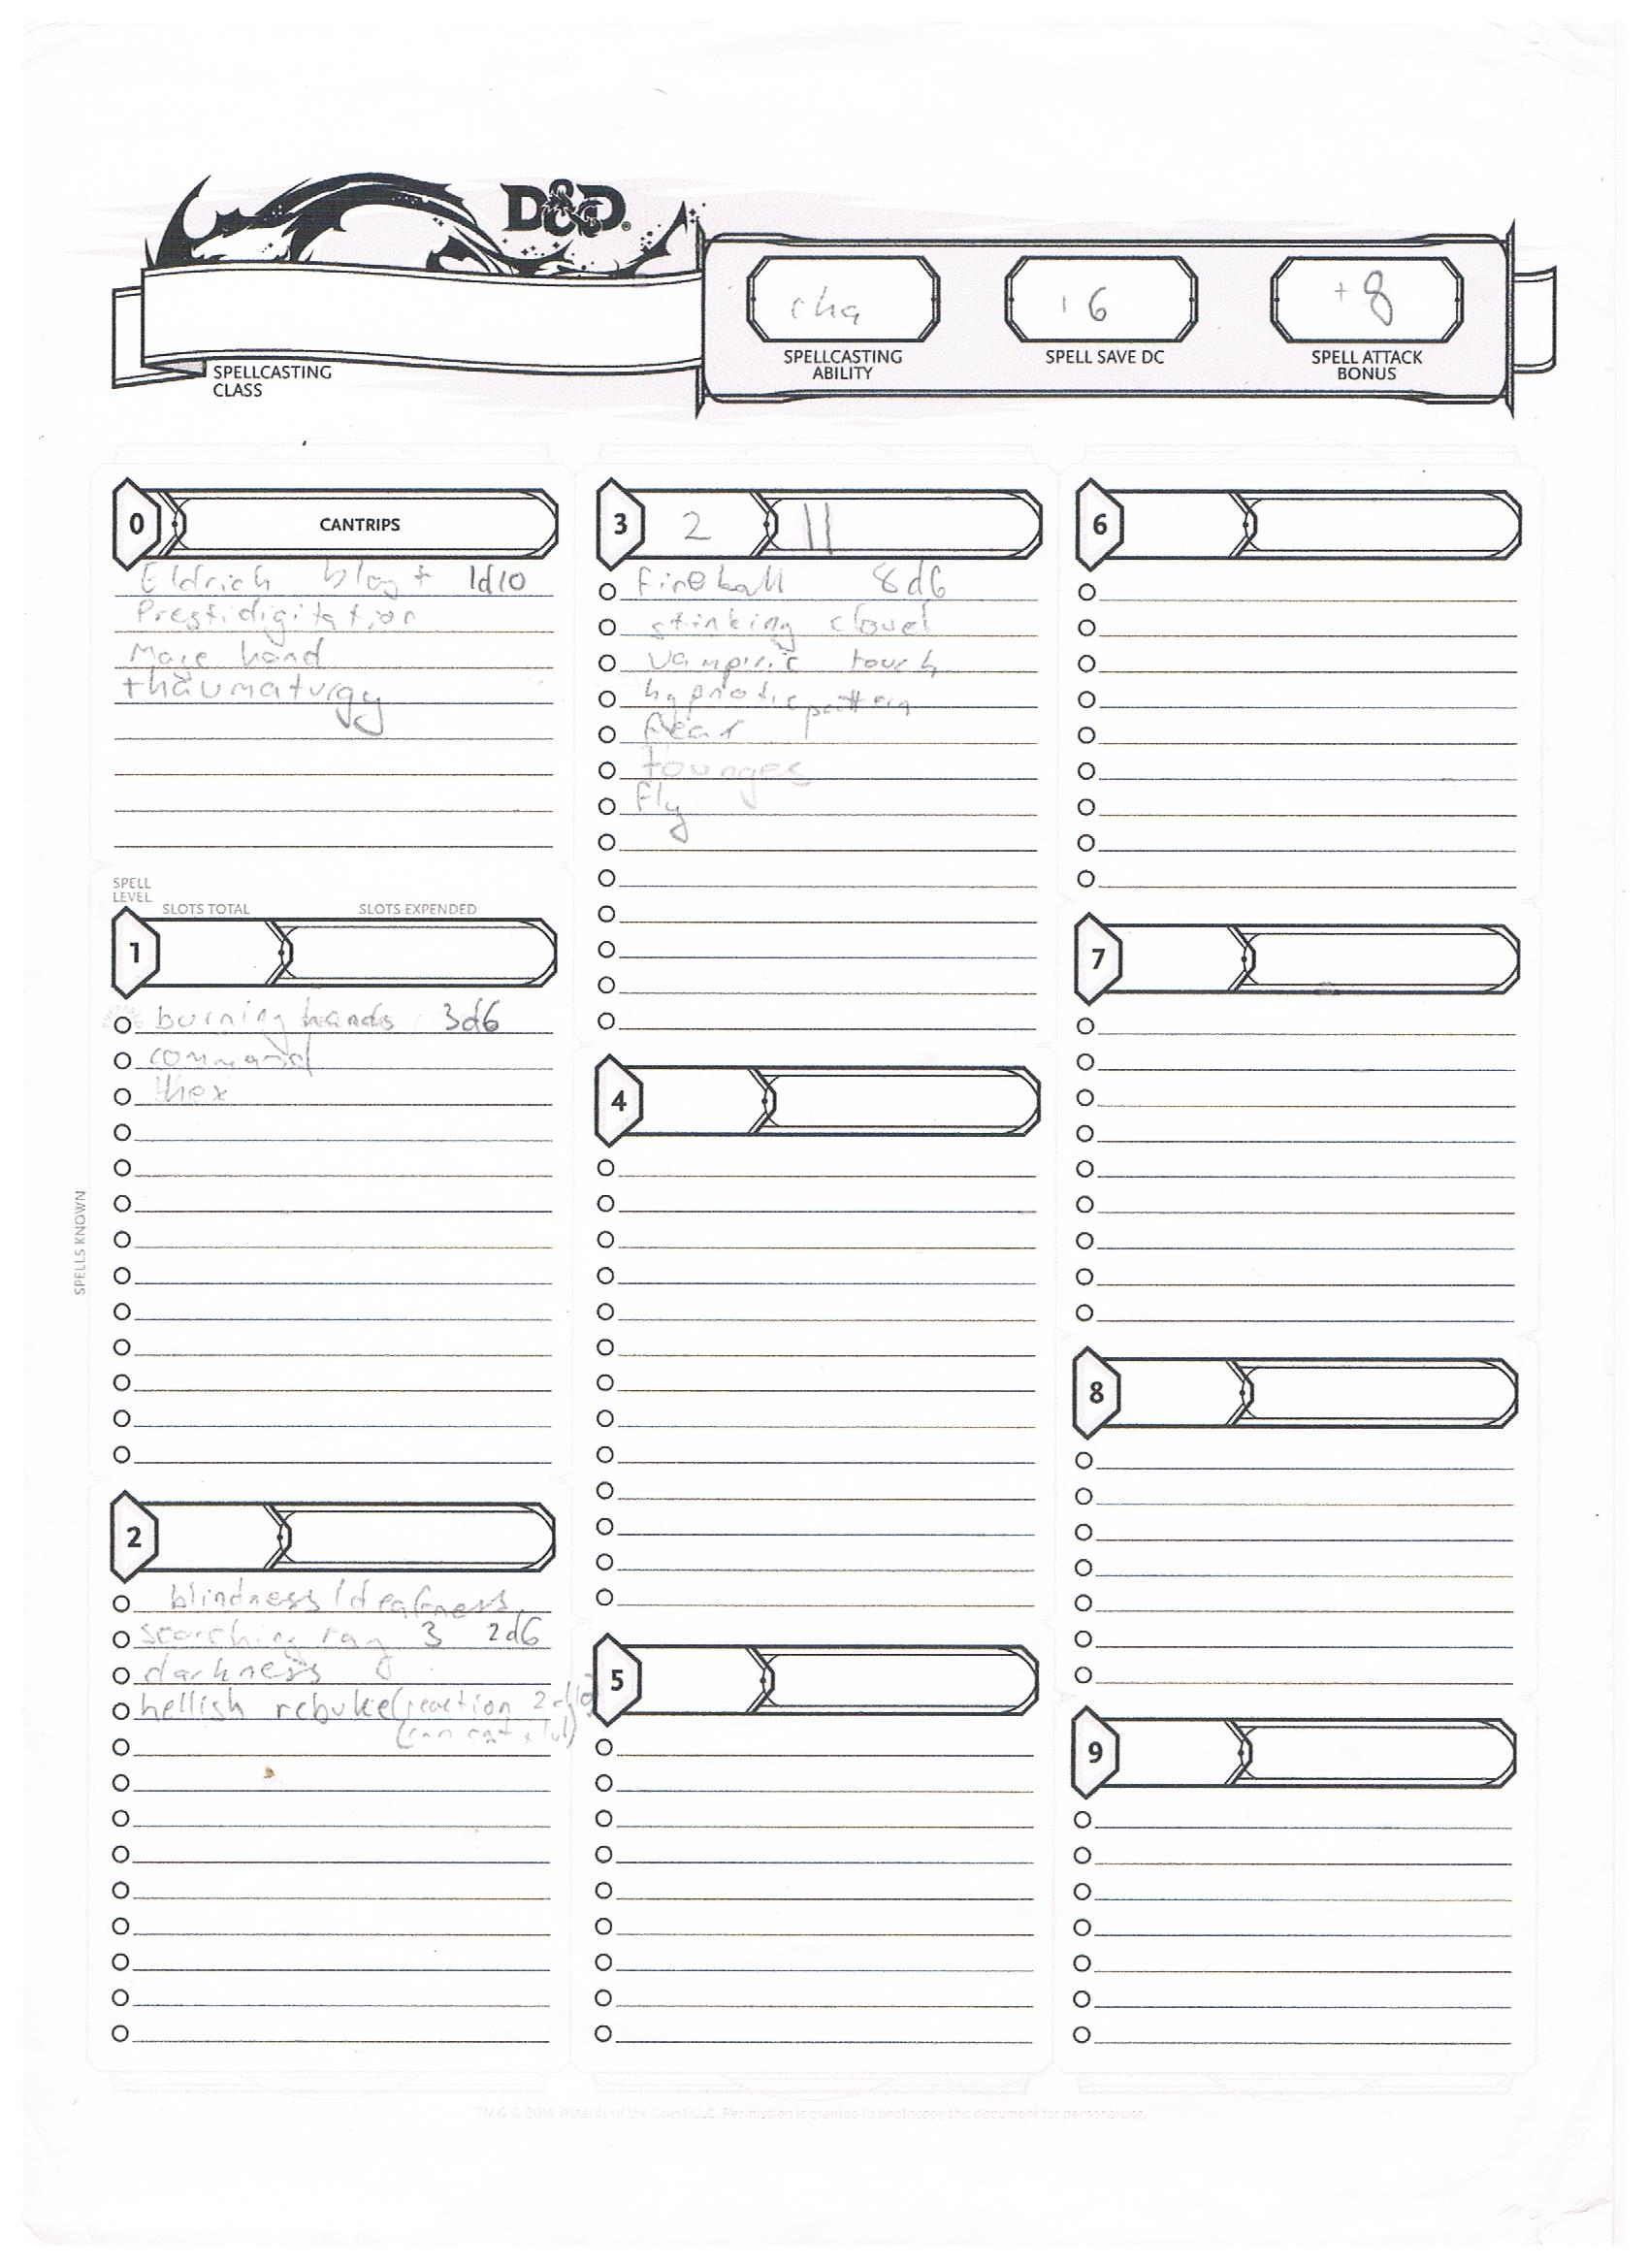 D&D®
cha
16
+8
SPELLCASTING
CLASS
SPELLCASTING
ABILITY
SPELL SAVE DC
SPELL ATTACK
BONUS
0
CANTRIPS
Eldrich blast 1d10
Prestidigitation
Mage hand
thaumaturgy
SPELL
LEVEL
SLOTS TOTAL
SLOTS EXPENDED
1
burning hands 3d6
command
hex
SPELLS KNOWN
2
blindness/deafness
scorching ray 3 2d6
darkness
hellish rebuke (reaction 2d10)
(can cast x 1
3
2
||
fireball 8d6
stinking cloud
vampiric touch
hypnotic pattern
fear
tounges
fly
4
5
6
7
8
9
TM & © 2014 Wizards of the Coast LLC. Permission is granted to photocopy this document for personal use.